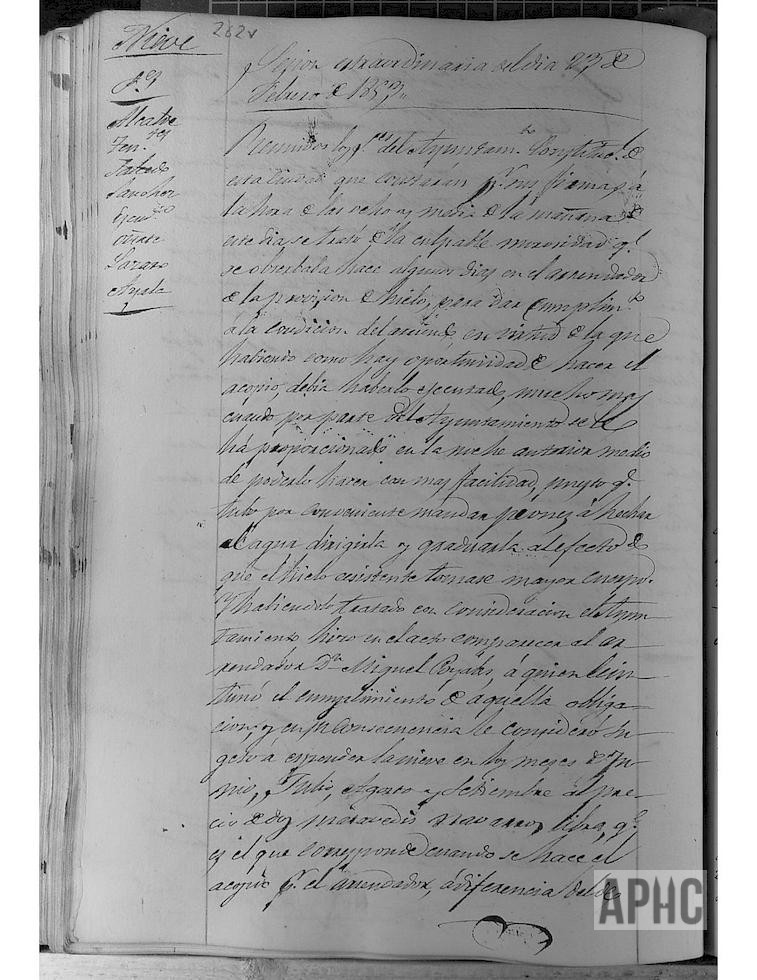 262v
Nieve
Sres
Alcalde
Ten.tes
Salcedo
Sanchez
Lazaro
Ayala
Sesion extraordinaria del dia 23 de
Febrero de 1853..
Reunidos los S.res del Ayuntam.to Constituc.l de
esta ciudad que constarán p.r sus firmas, á
la hora de las ocho y media de la mañana de
este dia se trató de la culpable morosidad q.e
se obserbaba hace algunos dias en el arrendador
de la provision de hielo, para dar cumplim.to
á la condicion del arriendo, en virtud de la que
habiendo como hay oportunidad de hacer el
acopio, debia haberlo ejecutado, mucho mas
cuando por parte del Ayuntamiento se le
há proporcionado en la noche anterior medio
de poderlo hacer con mas facilidad, puesto q.e
tubo por conveniente mandar peones á hechar
el agua dirigirla y graduarla al efecto de
que el hielo existente tomase mayor cuerpo.
Y habiendolo tratado con consideracion el Ayun
tamiento hizo en el acto comparecer al ar
rendador D.n Miguel á quien le in
timó el cumplimiento de aquella obliga
cion, y en su consecuencia le consideró su
geto á espender la nieve en los meses de Ju
nio, Julio, Agosto y Setiembre al pre
cio de dos maravedis navarros libra, q.e
es el que corresponde cuando se hace el
acopio p.r el arrendador, á diferencia del de
APHC